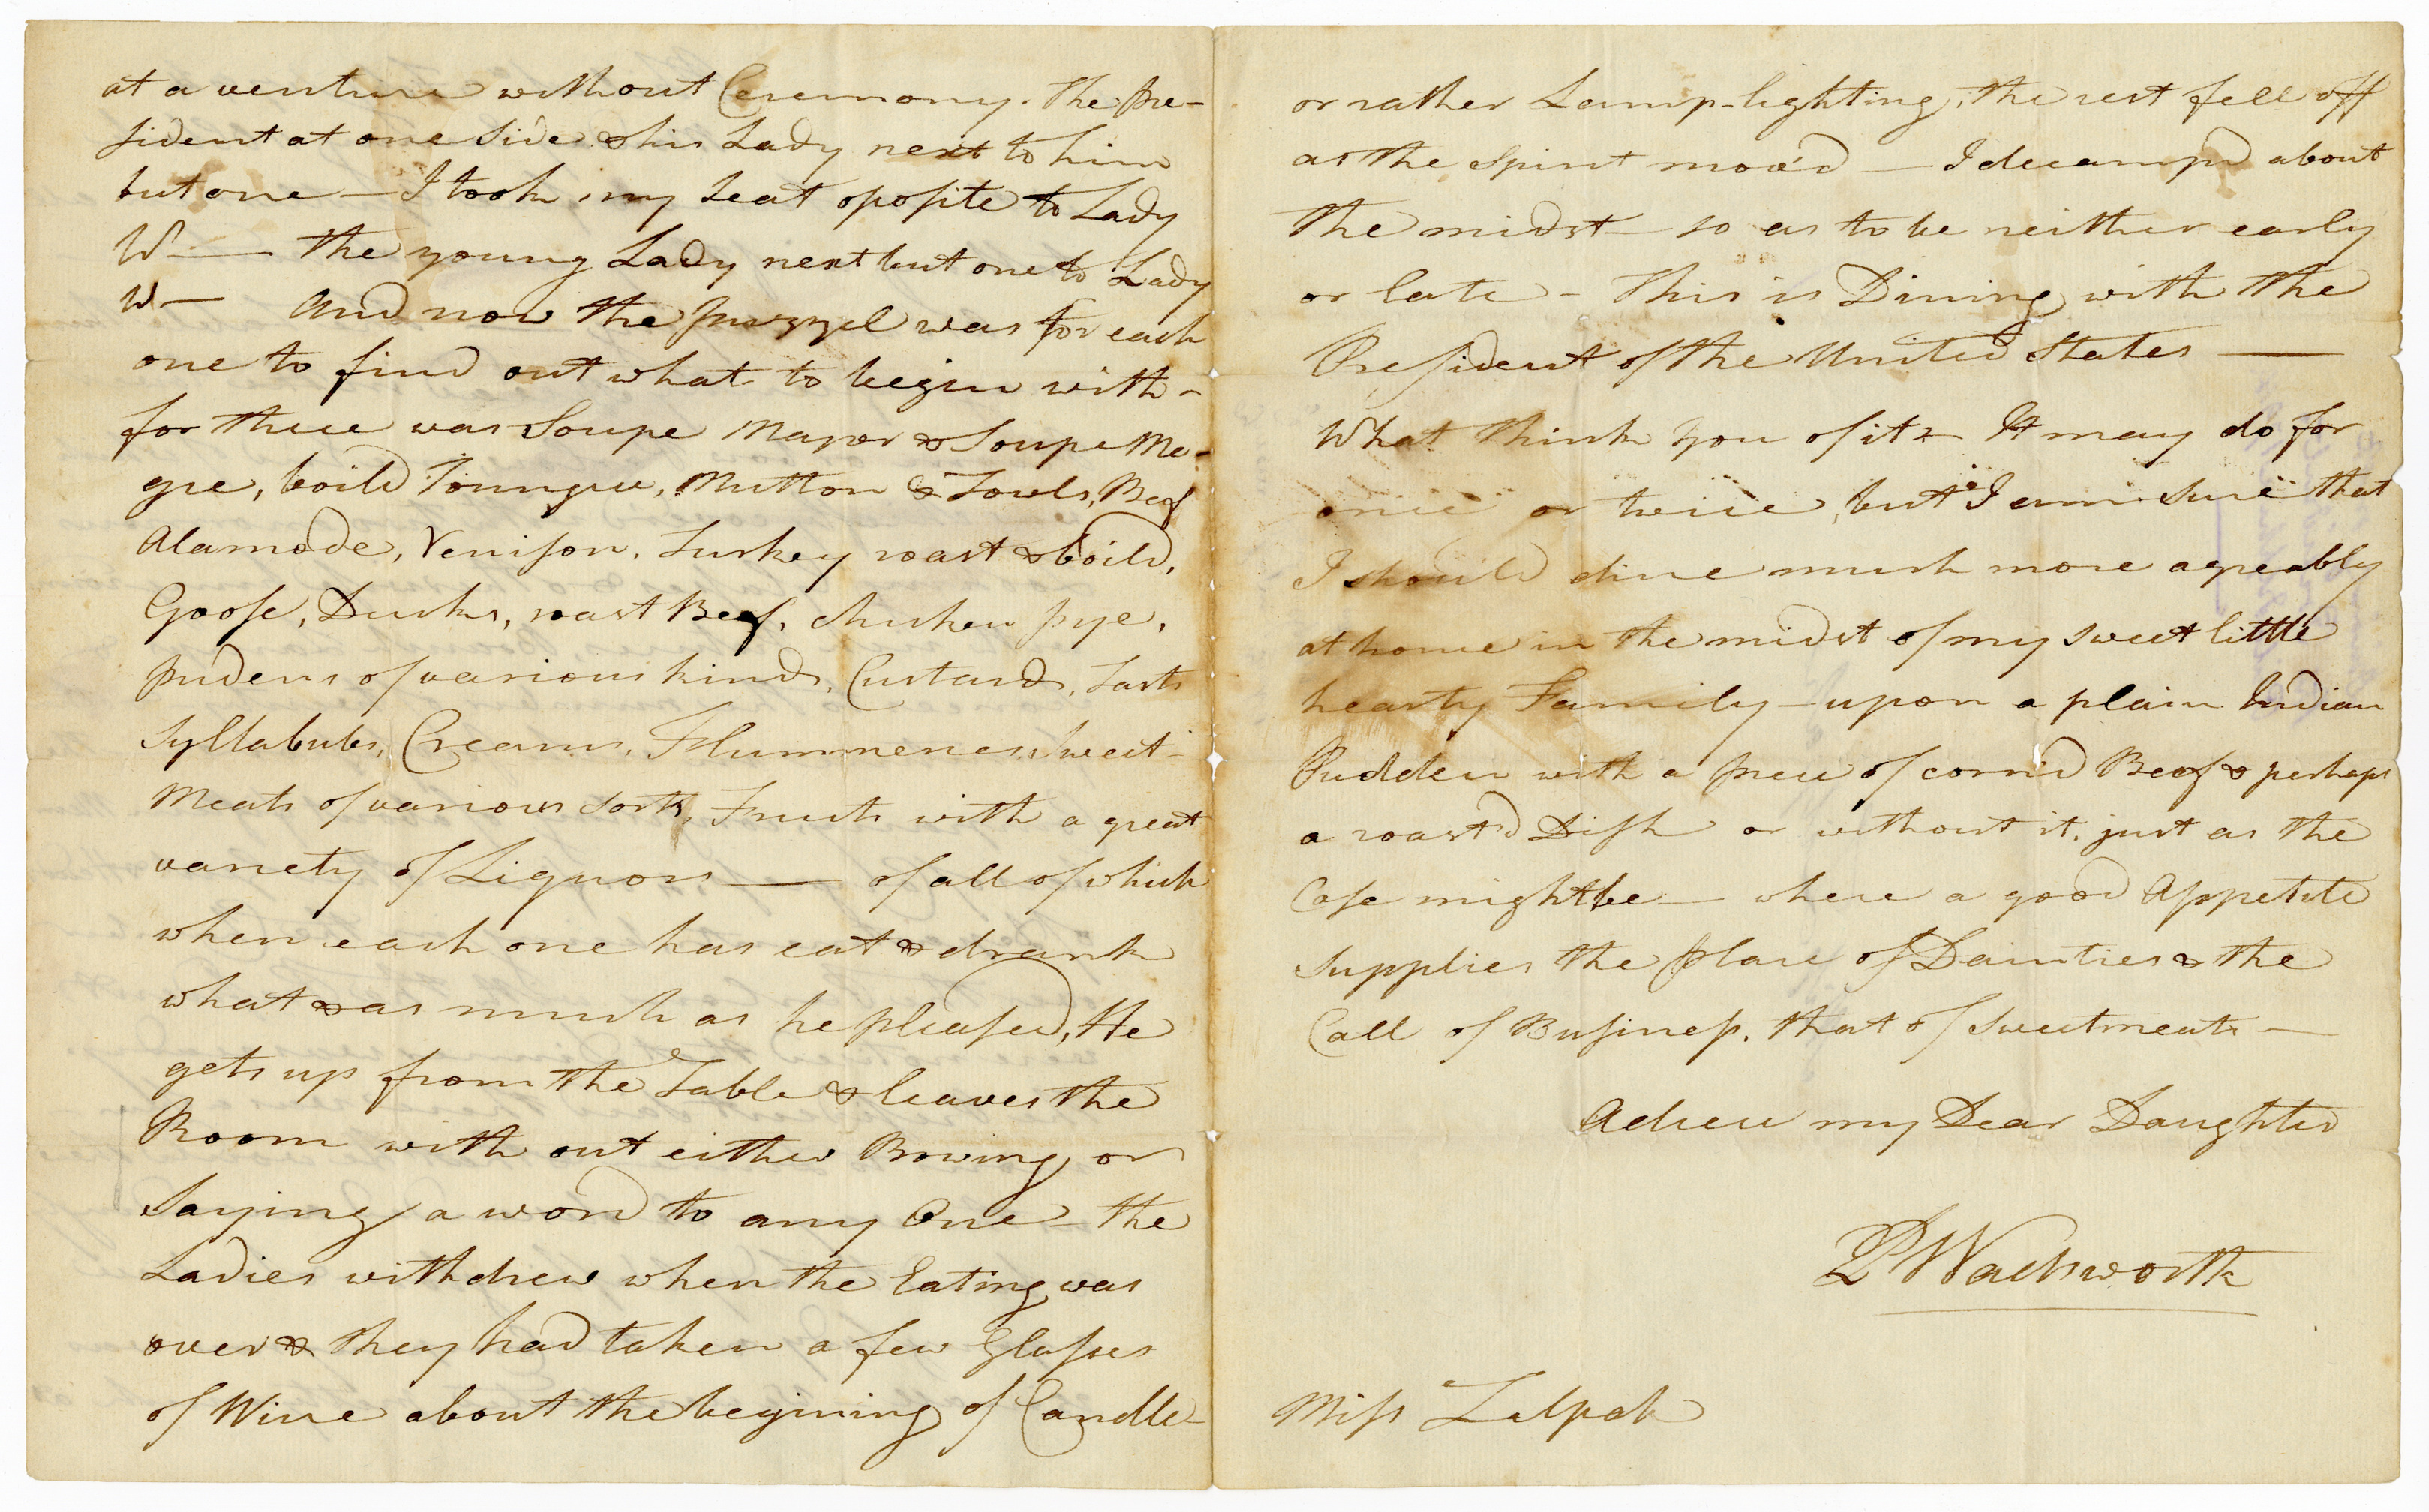 at a venture without Ceremony. The Pre-
sident at one side & his Lady next to him
but one — I took my seat oposite to Lady
W — the young Lady next but one to Lady
W — And now the Puzzyel was for each
one to find out what to begin with -
for there was Soupe Mayor & Soupe Me-
gre, boild Toungue, Mutton & Fowls, Beef
Alamode, Venison, Turkey roast & boild,
Goose, Ducks, roast Beef, chicken pye,
pudens of various kinds, Custards, Tarts
Syllabubs, Creams, Flummeries, Sweet-
Meats of various sorts, Fruits with a great
variety of Liquors — of all of which
when each one has eat & drank
what & as much as he pleased, He
gets up from the Table & leaves the
Room with out either Bowing or
Saying a word to any One - the
Ladies withdrew when the Eating was
over & they had taken a few Glasses
of Wine about the begining of Candle-
or rather Lamp-lighting, the rest fell off
as the Spirit mov'd — I decamp'd about
the midst - so as to be neither early
or late - This is Dining with the
President of the United States —
What think you of it - It may do for
once or twice, but I am sure that
I should dine much more agreably
at home in the midst of my sweet little
hearty Family - upon a plain Indian
Pudden with a piece of corn'd Beef & perhaps
a roast'd Dish or without it, just as the
Case might be — where a good Appetite
supplies the place of Dainties & the
Call of Business, that of Sweetmeats —
Adieu my Dear Daughter
P Wadsworth
Miss Zilpah